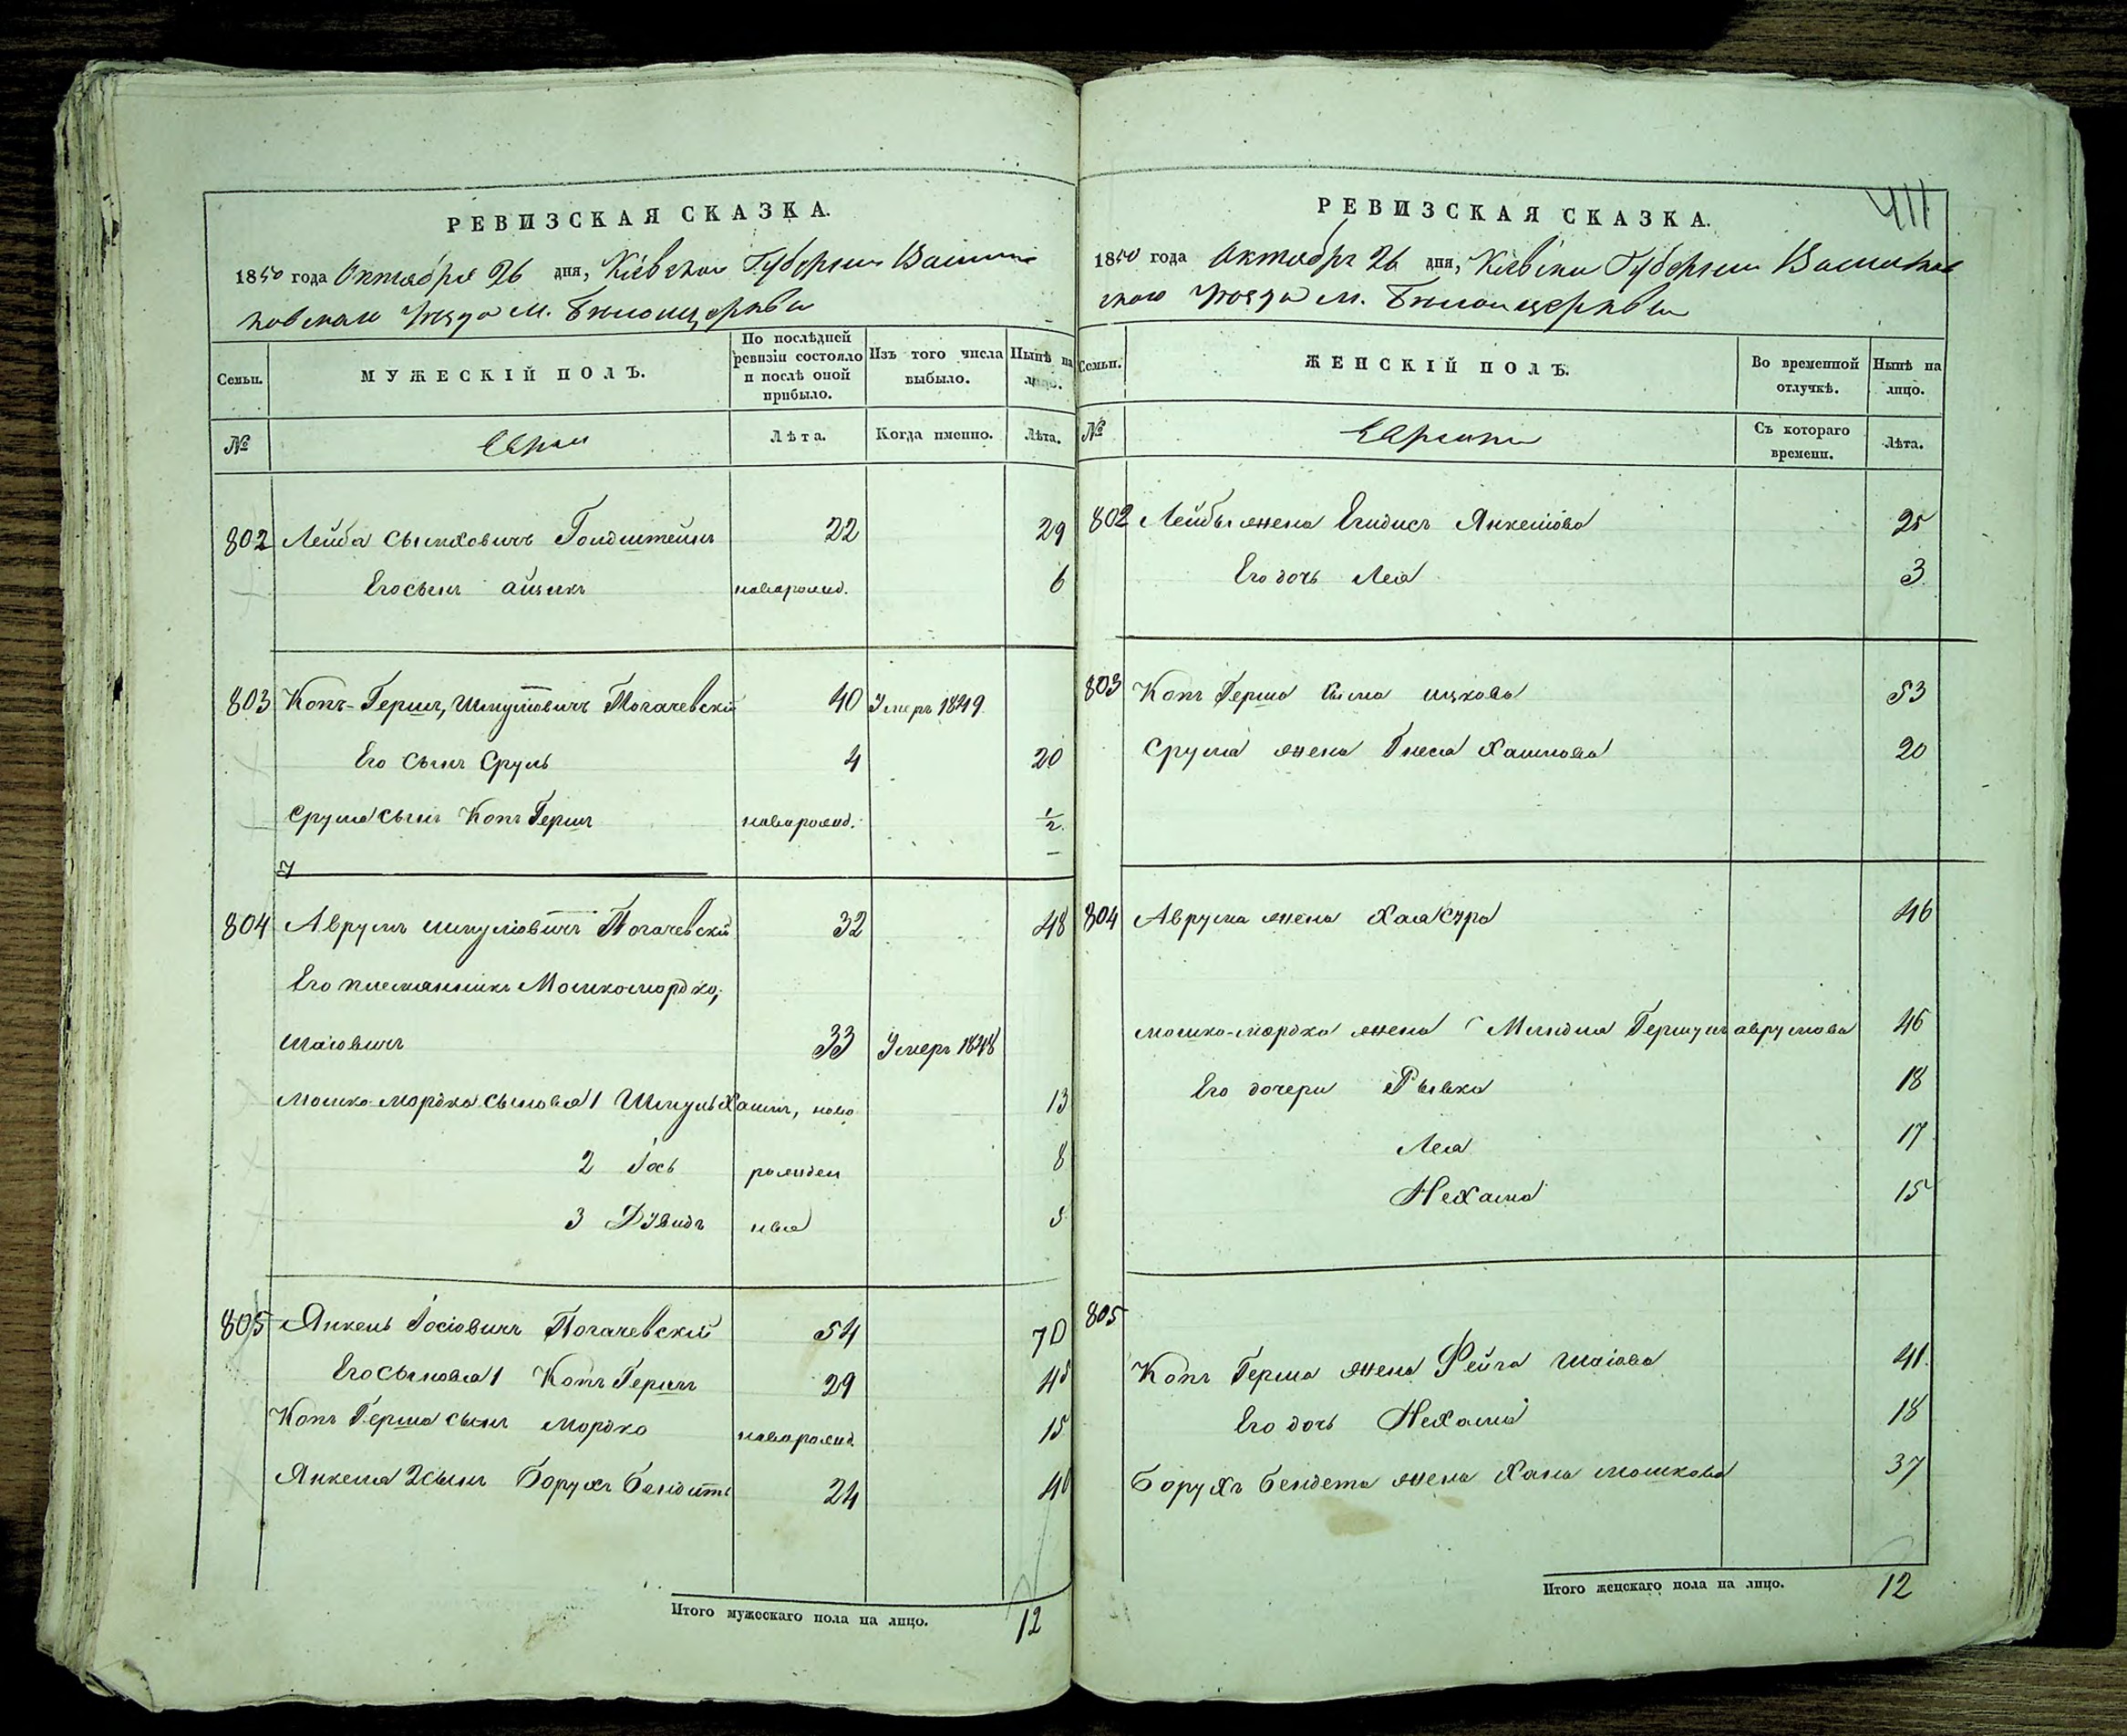 РЕВИЗСКАЯ СКАЗКА.
1850 года Октября 26 дня, Кіевской Губерніи Василь-
ковскаго уезда м. Белоицеркви
Семьи.
МУЖЕСКІЙ ПОЛЪ.
По послѣдней ревизіи состояло и послѣ оной прибыло.
Изъ того числа выбыло.
Нынѣ на лицо.
№
Евреи
Лѣта.
Когда именно.
Лѣта.
802 Лейба Сымховичъ Голдштейнъ 22 29
Его сынъ Айзикъ новорожд. 6
803 Копъ-Гершъ, Шмулiовичъ Погачевскій 40 Умеръ 1849
Его сынъ Сруль 4 20
Сруля сынъ Копъ Гершъ новорожд. 1/2
804 Аврумъ Шмулiовичъ Погачевскій 32 48
Его племянникъ Мошко-мордко,
Шаiовичъ 33 Умеръ 1848
Мошко-Мордка сыновья 1 Шмуль Хаимъ, ново 13
2 Iось рожден 8
3 Дувидъ ные 5
805 Янкель Iосiовичъ Погачевскій 54 70
Его сыновья 1 Копъ Гершъ 29 45
Копъ Герша сынъ мордко новорожд. 15
Янкеля 2 сынъ Борухъ Бендитъ 24 40
Итого мужескаго пола на лицо. 12
411
РЕВИЗСКАЯ СКАЗКА.
1850 года Октября 26 дня, Кіевской Губерніи Васильков-
скаго уезда м. Белоицеркви
Семьи.
ЖЕНСКІЙ ПОЛЪ.
Во временной отлучкѣ.
Нынѣ на лицо.
№
Еврейки
Съ котораго времени.
Лѣта.
802 Лейбы жена Ендисъ Янкелiова 25
Его дочь Лея 3
803 Копъ Герша ицкова 53
Сруля жена Хаимова 20
804 Аврума жена Хая Сура 46
мошко-мордка жена Миндля Гершунъ аврумова 46
Его дочери Рывка 18
Лея 17
Нехама 15
805
Копъ Герша жена Фейга Шаiова 41
Его дочь Нехама 18
Борухъ Бендета жена Хана мошкова 37
Итого женскаго пола на лицо. 12